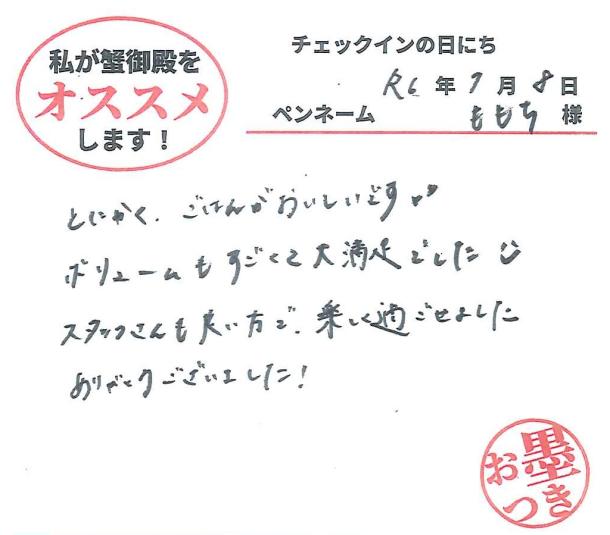 私が蟹御殿を
オススメ
します！
チェックインの日にち
R6年9月8日
ペンネーム ももち 様
とにかく、ごはんがおいしいです♡
ボリュームもすごくて大満足でした☺
スタッフさんも良い方で、楽しく過ごせました
ありがとうございました！
お墨
つき